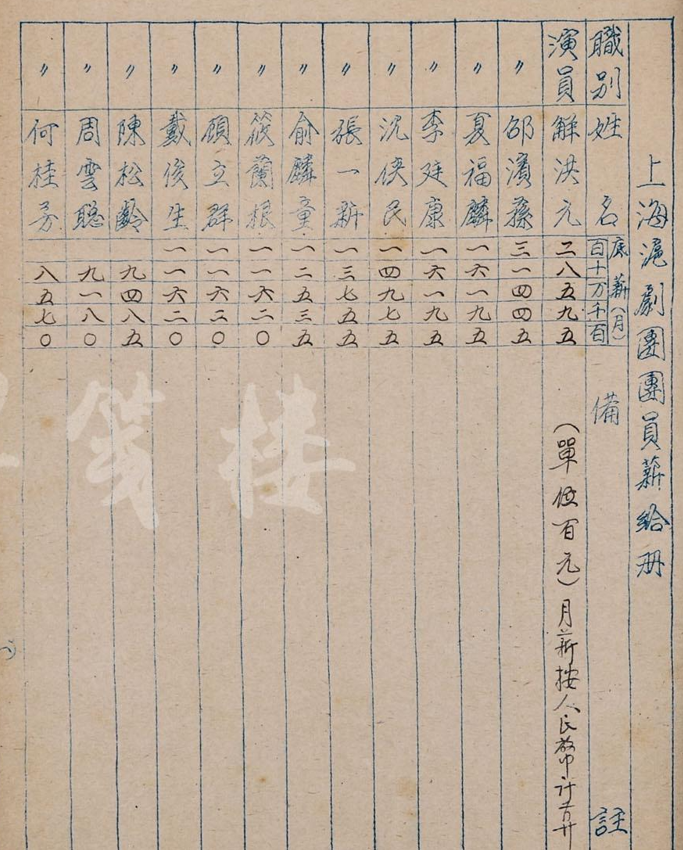 上海滬劇團團員薪給册
職別 姓名 底薪(月) 百十万千百 備註
演員 解洪元 二八五九五 (單位百元)月薪按人民幣計算
〃 邵濱孫 三一四四五
〃 夏福麟 一六一九五
〃 李廷康 一六一九五
〃 沈俠民 一四九七五
〃 張一新 一三七五五
〃 俞麟童 一二五三五
〃 筱蘭根 一一六二〇
〃 顧立群 一一六二〇
〃 戴俊生 一一六二〇
〃 陳松齡 九四八五
〃 周雲聰 九一八〇
〃 何桂芳 八五七〇
笺楼